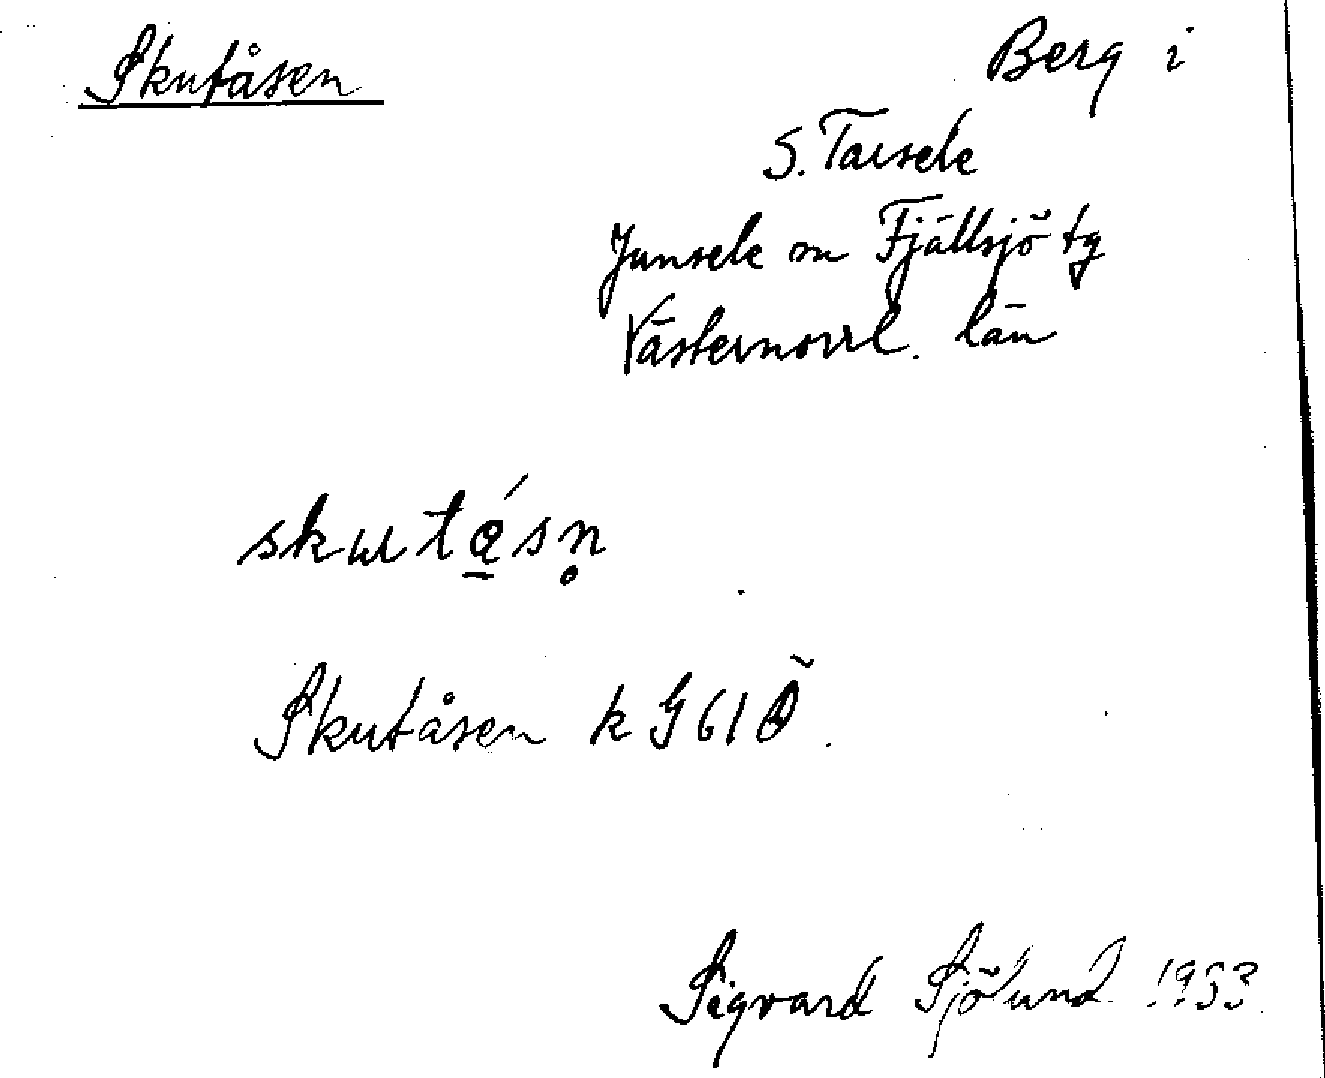 Skutåsen
Berg i
S. Tåsele
Junsele o Fjällsjö tg
Västernorrl. län
skutásn̥
Skutåsen k G61Ö.
Sigvard Sjölund 1933